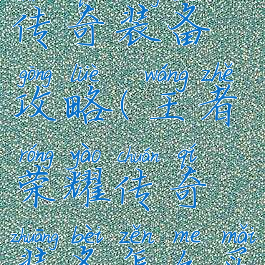 传奇装备
gōng lüè wáng zhě
攻略(王者
róng yào chuán qí
荣耀传奇
zhuāng bèi zěn me mǎi
装备怎么买